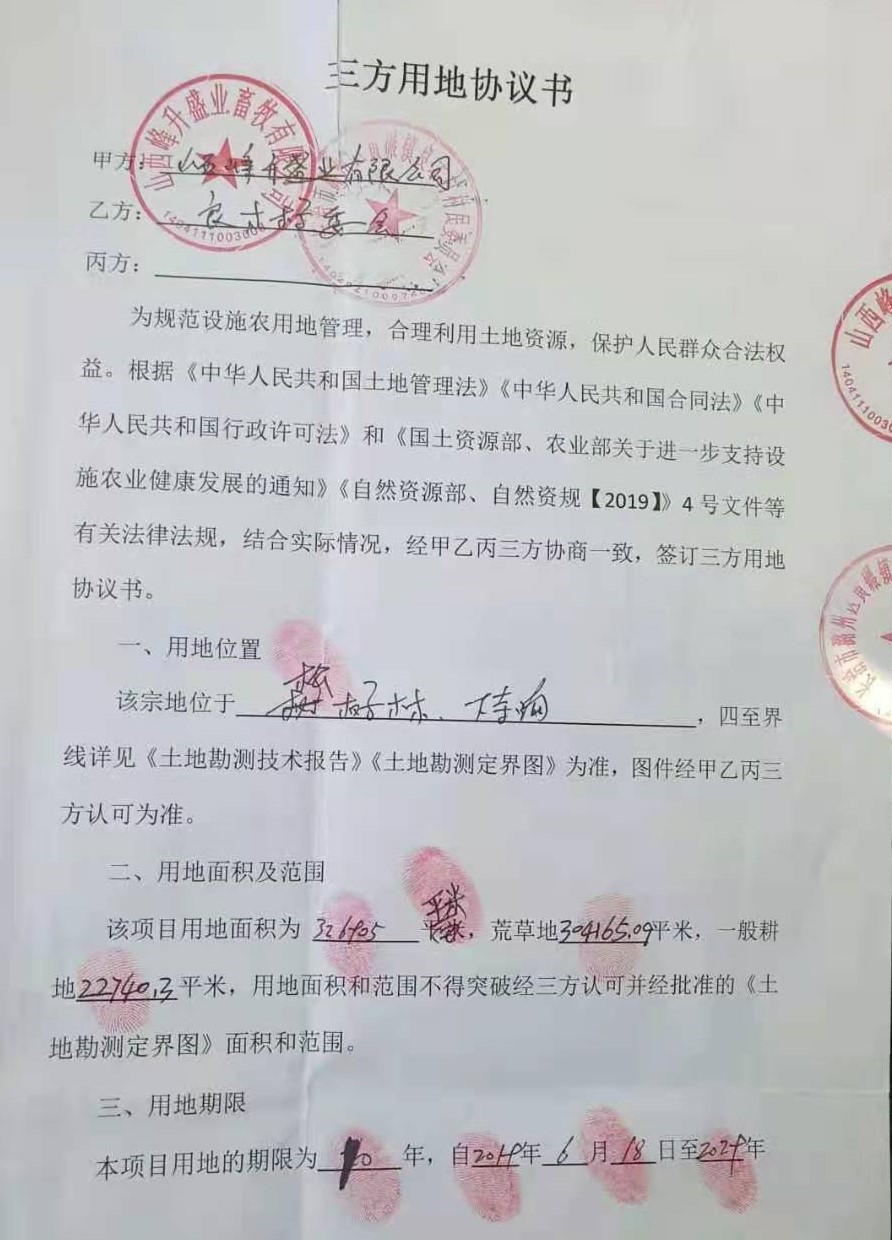 三方用地协议书
甲方：山西峰升盛业有限公司
乙方：良才村委会
丙方：
为规范设施农用地管理，合理利用土地资源，保护人民群众合法权
益。根据《中华人民共和国土地管理法》《中华人民共和国合同法》《中
华人民共和国行政许可法》和《国土资源部、农业部关于进一步支持设
施农业健康发展的通知》《自然资源部、自然资规【2019】》4 号文件等
有关法律法规，结合实际情况，经甲乙丙三方协商一致，签订三方用地
协议书。
一、用地位置
该宗地位于，四至界
线详见《土地勘测技术报告》《土地勘测定界图》为准，图件经甲乙丙三
方认可为准。
二、用地面积及范围
该项目用地面积为 326905 平米，荒草地304165.09平米，一般耕
地22740.3平米，用地面积和范围不得突破经三方认可并经批准的《土
地勘测定界图》面积和范围。
三、用地期限
本项目用地的期限为10年，自2019年6月18日至2029年
山西峰升盛业畜牧有限公司
山西峰
长治市潞州区良